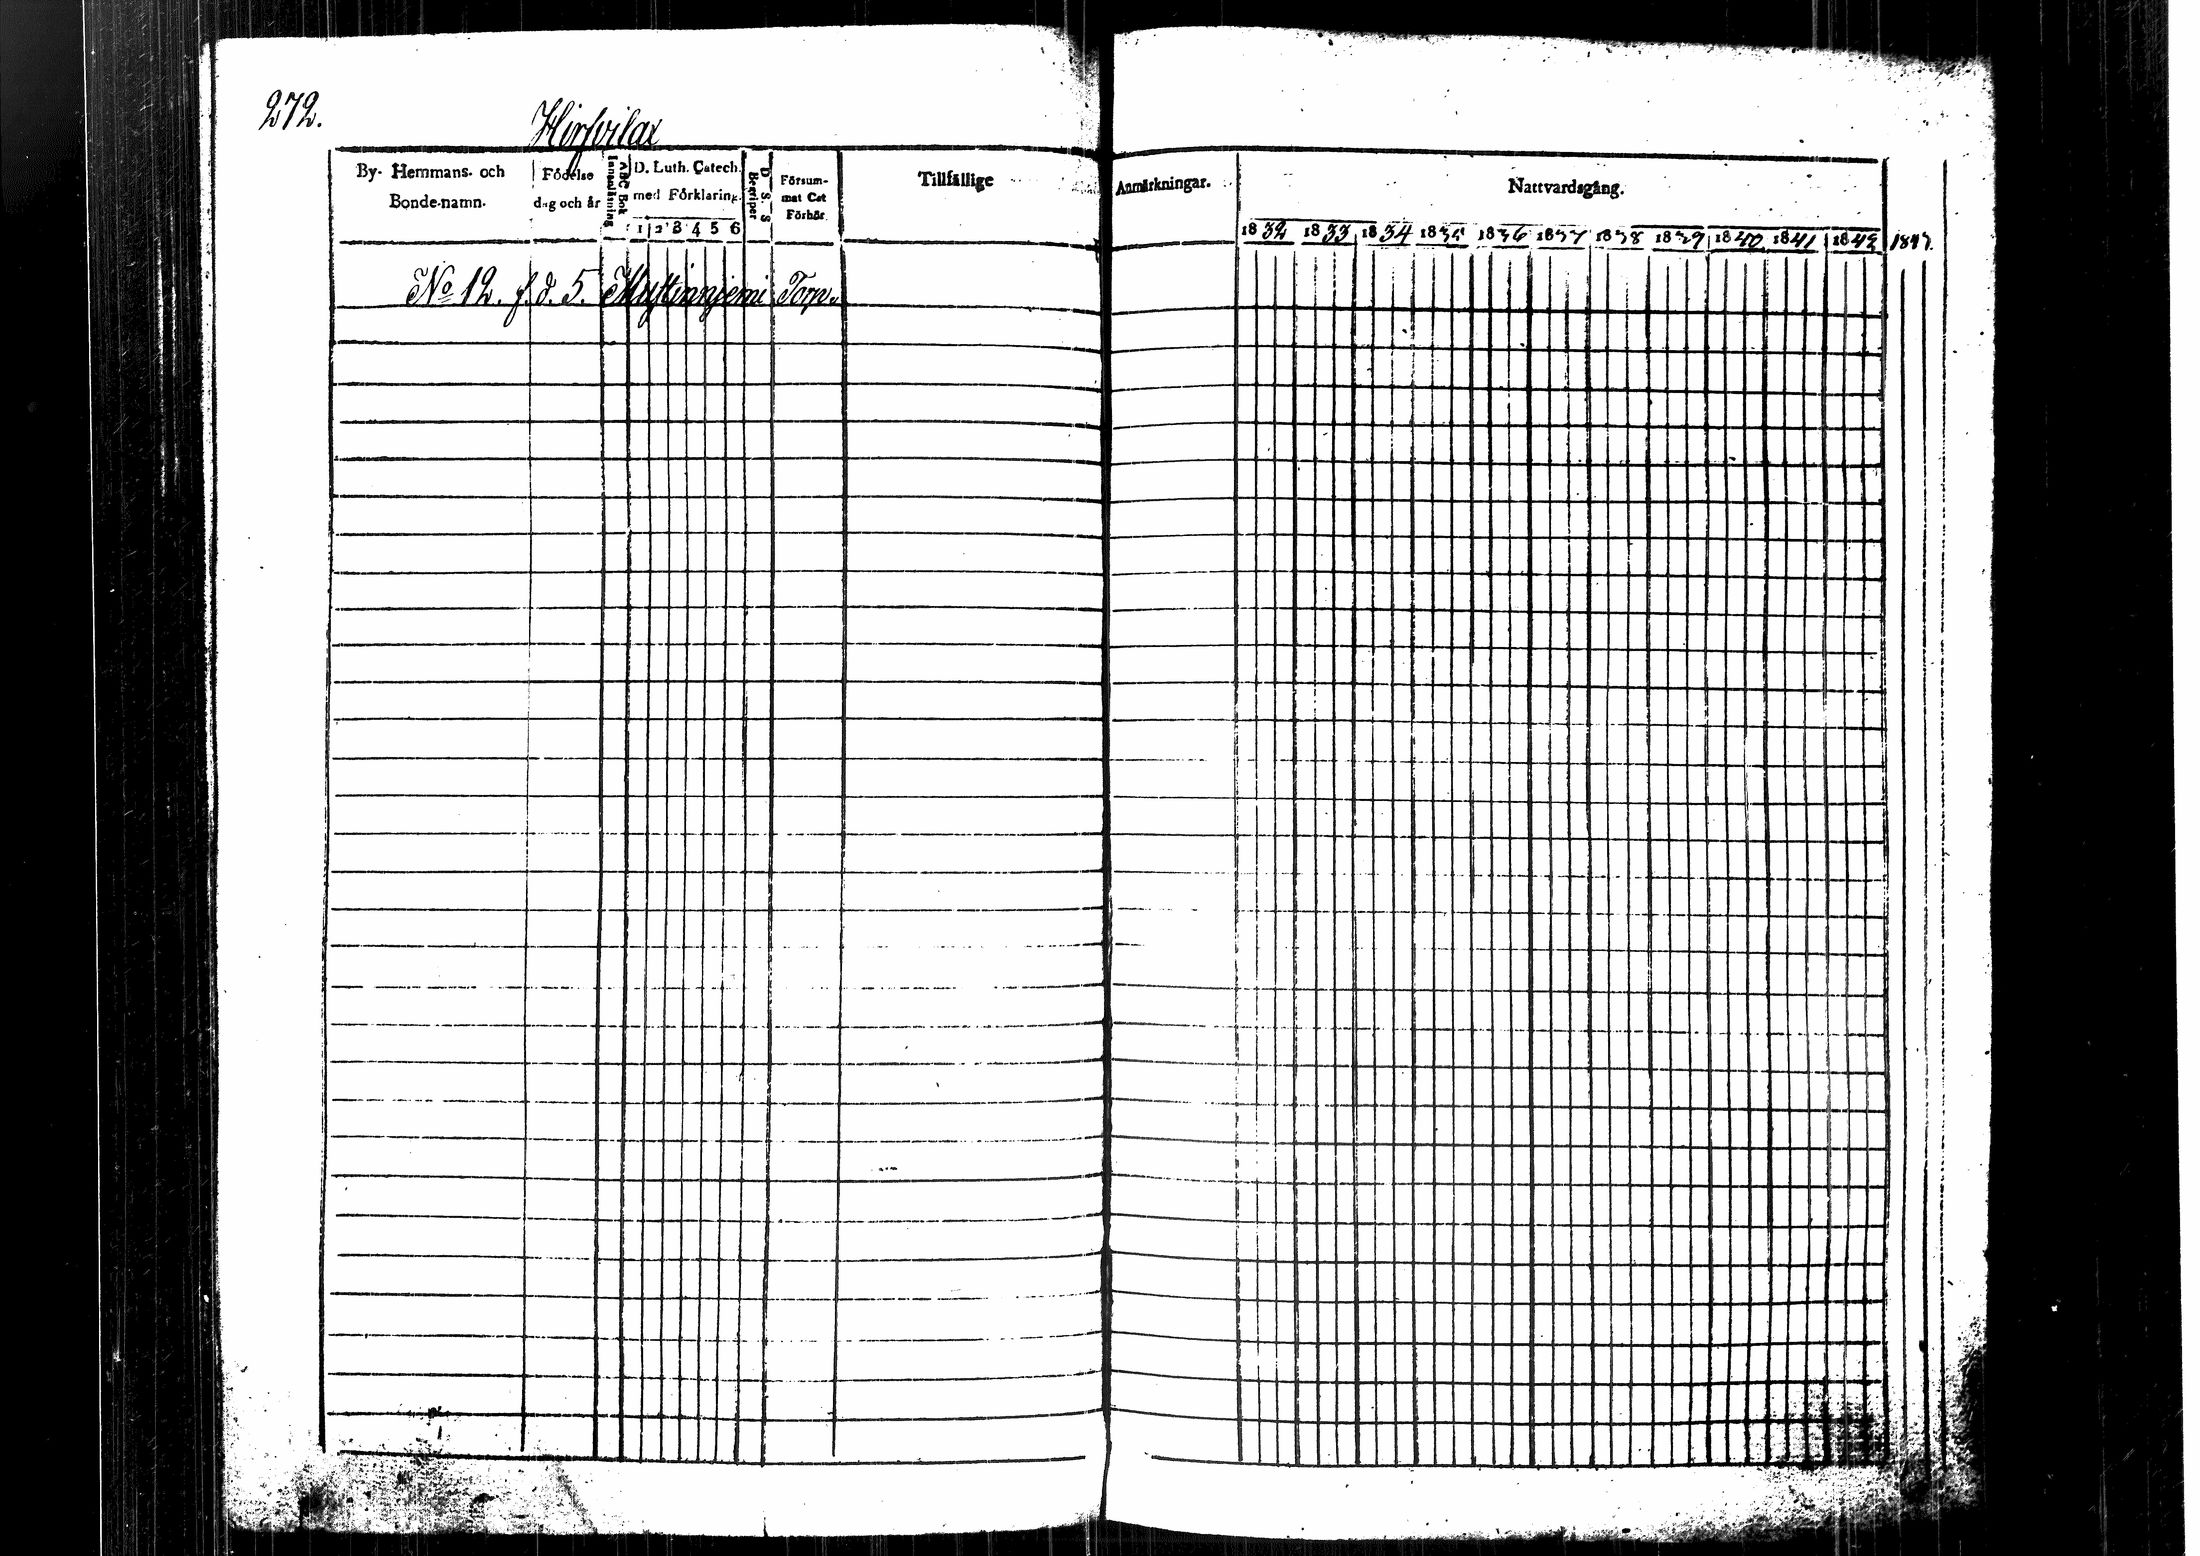 272.
Hirfvilax
By- Hemmans- och Bonde-namn.
Födelse dag och år
Innanläsning
ABC Bok
D. Luth. Catech. med Förklaring.
1 2 3 4 5 6
D. S. S. Begriper
Försum- mat Cat Förhör
Tillfällige Anmärkningar.
Nattvardsgång.
1832 1833 1834 1835 1836 1837 1838 1839 1840 1841 1842 1843.
No 12. f. d. 5. Mustinnjemi Torp.